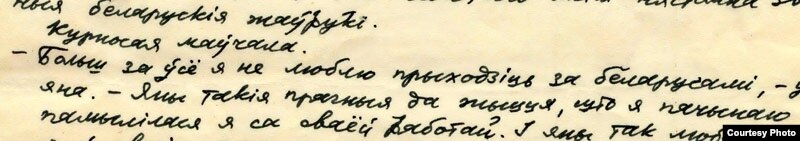 ныя беларускія жаўрукі.
Курносая маўчала.
– Больш за ўсё я не люблю прыходзіць за беларусамі, –
яна. – Яны такія прагныя да жыцця, што я пачынаю
памылілася я са сваёй работай. І яны так
Courtesy Photo